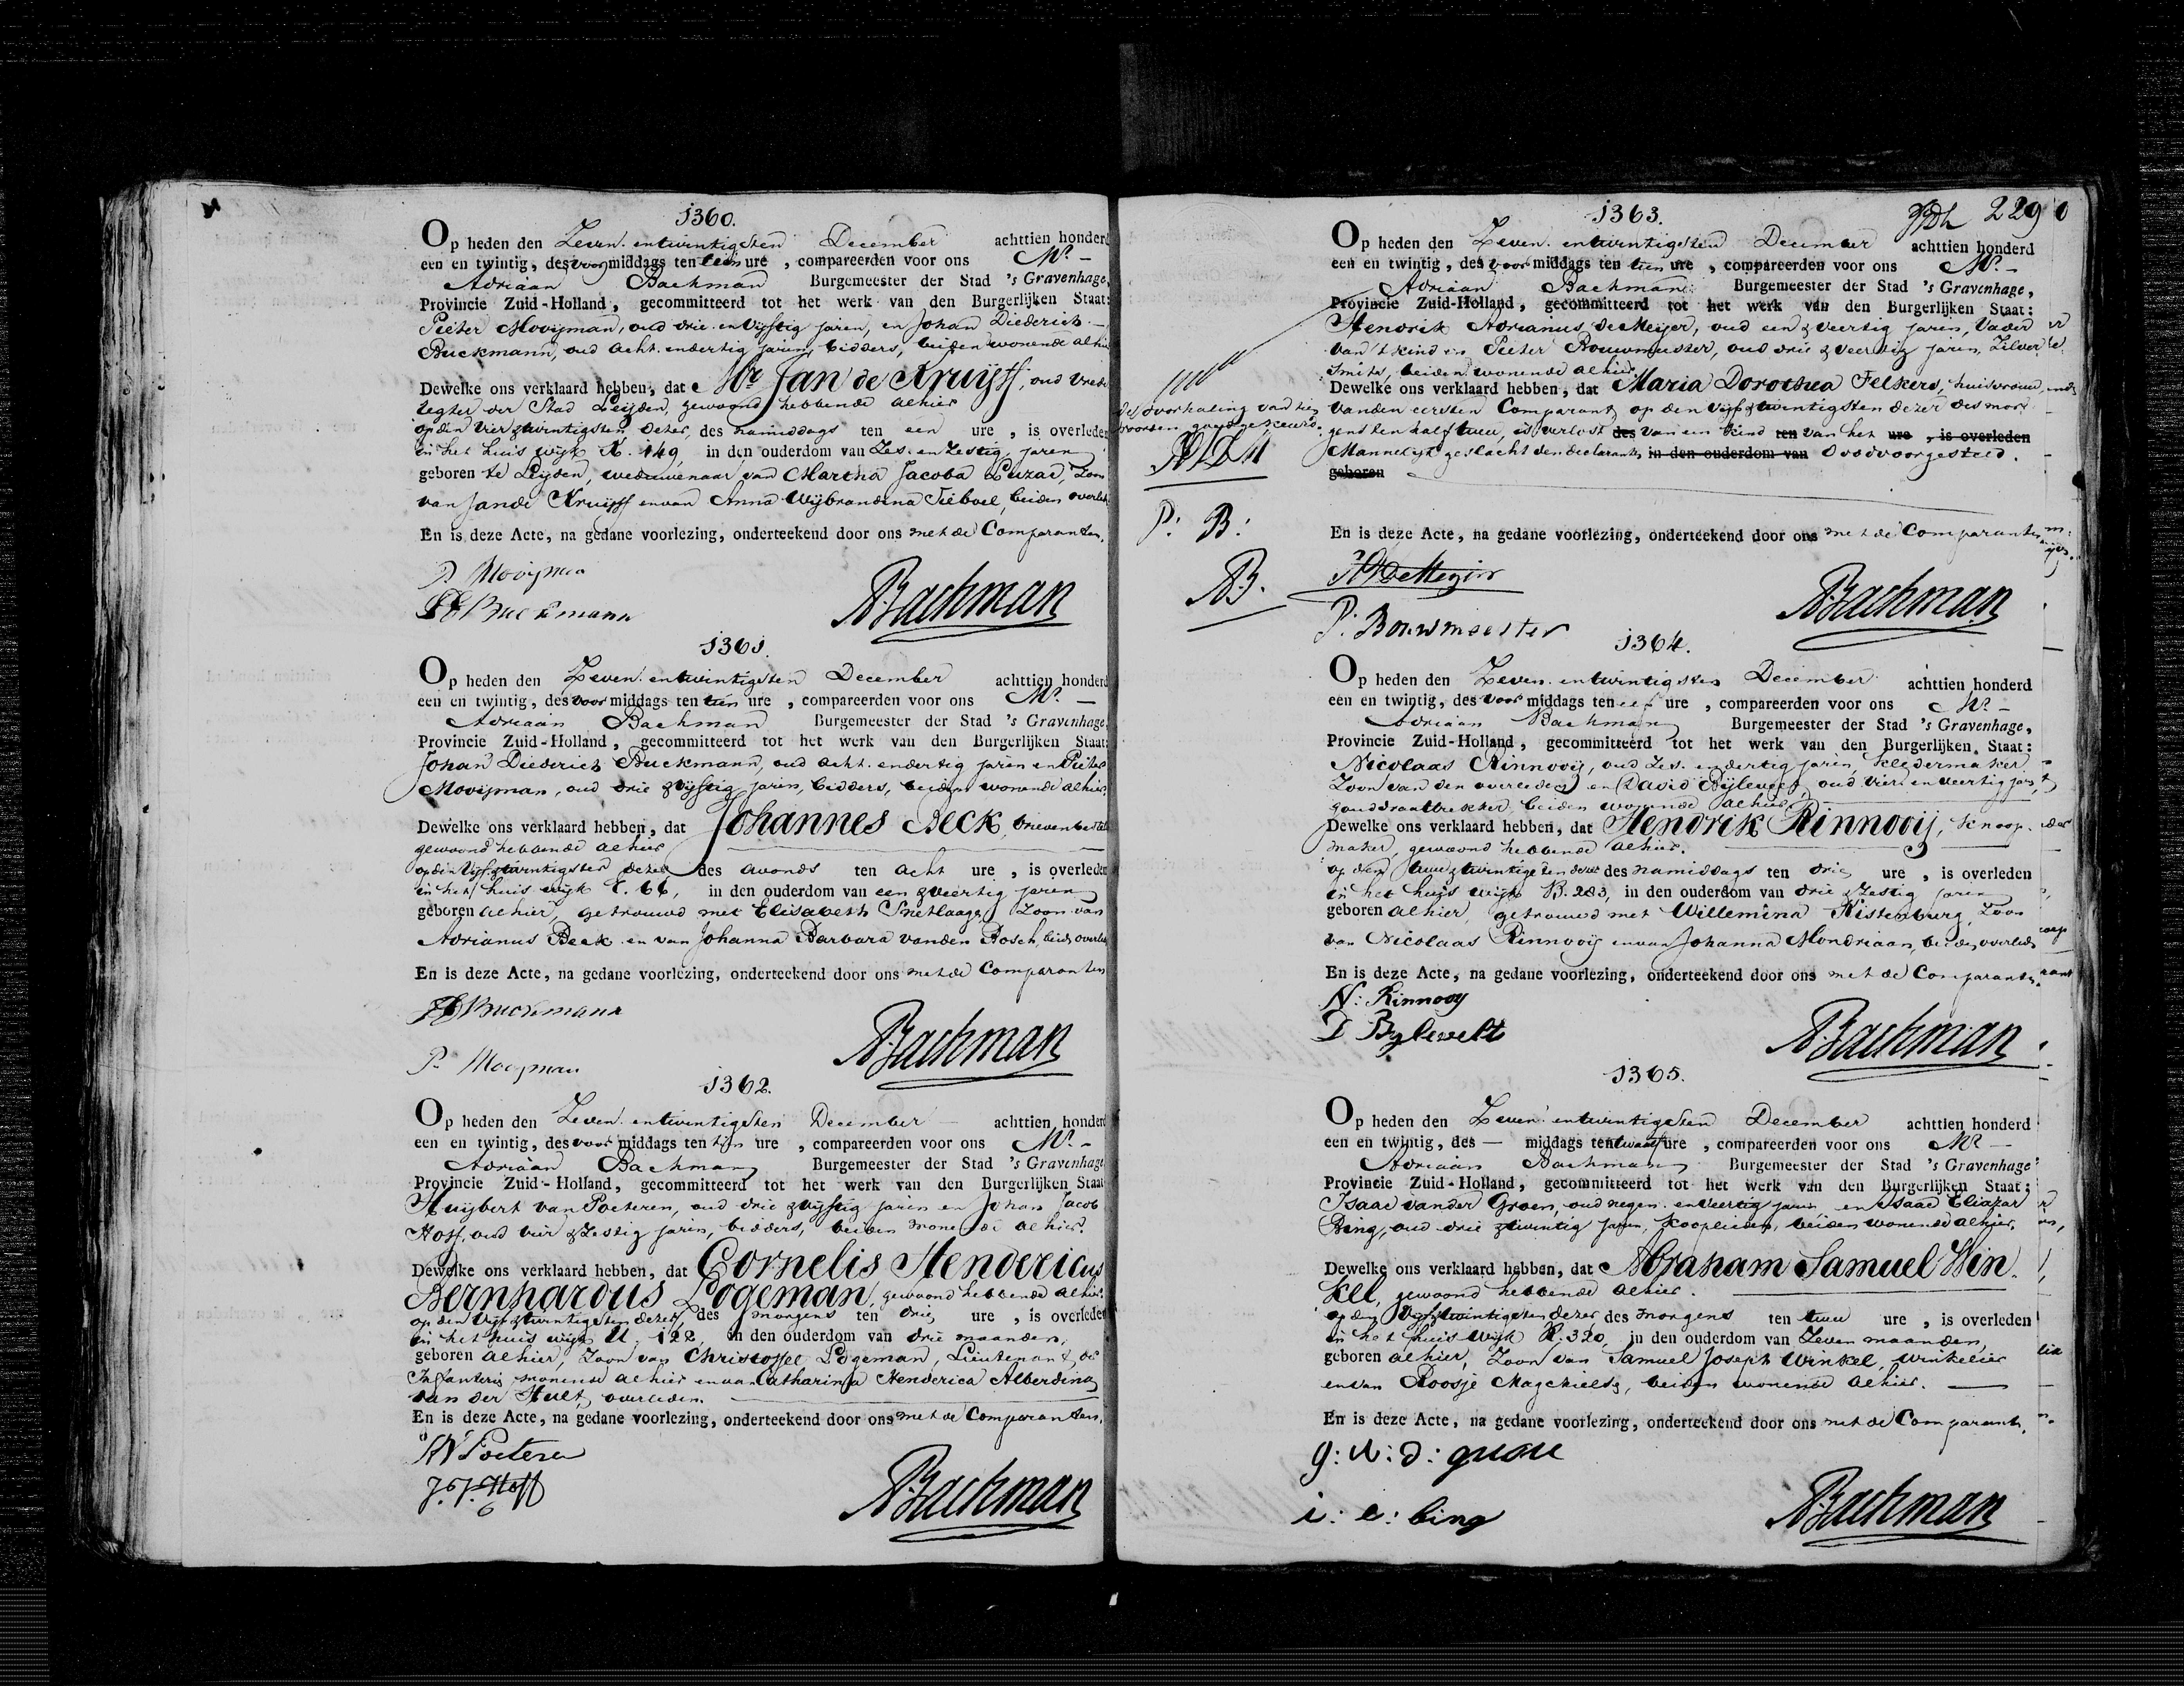 1360.
Op heden den Zeven en twintigsten December achttien honderd
een en twintig, des voormiddags ten tien ure, compareerden voor ons Mr. —
Adriaan Bachman Burgemeester der Stad 's Gravenhage,
Provincie Zuid-Holland, gecommitteerd tot het werk van den Burgerlijken Staat:
Pieter Mooijman, oud drie en vijftig jaren, en Johan Diederich
Buckmann, oud acht en dertig jaren, bidders, beiden wonende alhier
Dewelke ons verklaard hebben, dat Mr. Jan de Kruijff, oud Vrede
regter der Stad Leijden, gewoond hebbende alhier
op den vier & twintigsten dezer, des namiddags ten een ure, is overleden
in het huis wijk K. 149, in den ouderdom van Zes en Zestig jaren
geboren te Leijden, weduwenaar van Martha Jacoba Luzac, Zoon
van Jan de Kruijff en van Anna Wijbrandina Tieboel, beiden overled
En is deze Acte, na gedane voorlezing, onderteekend door ons met de Comparanten.
P. Mooijman
JD Buckmann
ABachman
1361.
Op heden den Zeven en twintigsten December achttien honderd
een en twintig, des voor middags ten tien ure, compareerden voor ons Mr. —
Adriaan Bachman Burgemeester der Stad 's Gravenhage,
Provincie Zuid-Holland, gecommitteerd tot het werk van den Burgerlijken Staat:
Johan Diederich Buckmann, oud acht en dertig jaren en Pieter
Mooijman, oud drie & vijftig jaren, bidders, beiden wonende alhier.
Dewelke ons verklaard hebben, dat Johannes Beck, brievenbestell
gewoond hebbende alhier
op den Vijf & twintigsten dezer des avonds ten acht ure, is overleden
in het huis wijk T. 66, in den ouderdom van een & veertig jaren
geboren alhier, getrouwd met Elisabeth Snetlaage, Zoon van
Adrianus Beck en van Johanna Barbara vanden Bosch, beide overled
En is deze Acte, na gedane voorlezing, onderteekend door ons met de Comparanten
JD Buckmann
P. Mooijman
ABachman
1362.
Op heden den Zeven en twintigsten December achttien honderd
een en twintig, des voor middags ten tien ure, compareerden voor ons Mr. —
Adriaan Bachman Burgemeester der Stad 's Gravenhage
Provincie Zuid-Holland, gecommitteerd tot het werk van den Burgerlijken Staat
Huijbert van Poeteren, oud drie & vijftig jaren en Johan Jacob
Hoff, oud vier & Zestig jaren, bidders, beiden wonende alhier.
Dewelke ons verklaard hebben, dat Cornelis Hendericus
Bernhardus Logeman, gewoond hebbende alhier.
op den Vijf & twintigsten dezer, des morgens ten drie ure, is overleden
in het huis wijk U. 122, in den ouderdom van drie maanden,
geboren alhier, Zoon van Christoffel Logeman, Lieutenant, de
Infanterie wonende alhier en van Catharina Henderica Alberdina
van der Hult, overleden.
En is deze Acte, na gedane voorlezing, onderteekend door ons met de Comparanten.
HV Poeteren
J. J. Hoff
ABachman
229
1363.
Op heden den Zeven en twintigsten December achttien honderd
een en twintig, des voor middags ten tien ure, compareerden voor ons Mr. —
Adriaan Bachman Burgemeester der Stad 's Gravenhage,
Provincie Zuid-Holland, gecommitteerd tot het werk van den Burgerlijken Staat:
Hendrik Adrianus de Meijer, oud een & veertig jaren, Vader
van 't kind en Pieter Bouwmeester, oud drie & veertig jaren, Zilver
Smits, beiden wonende alhier.
Dewelke ons verklaard hebben, dat Maria Dorothea Felkers, huisvrouw
vanden eersten Comparant, op den vijf & twintigsten dezer des mor
gens ten half twee, is verlost des van een kind ten van het ure, is overleden
Mannelijk geslacht den declarants in den ouderdom van doodvoorgesteld.
geboren
de doorhaling van tien
woorden goedgekeurd.
HADM
P: B:
AB.
En is deze Acte, na gedane voorlezing, onderteekend door ons met de Comparanten
HADeMeijer
P: Bouwmeester
ABachman
1364.
Op heden den Zeven en twintigsten December achttien honderd
een en twintig, des voor middags ten elf ure, compareerden voor ons Mr. —
Adriaan Bachman Burgemeester der Stad 's Gravenhage,
Provincie Zuid-Holland, gecommitteerd tot het werk van den Burgerlijken Staat:
Nicolaas Rinnooij, oud Zes en dertig jaren, kledermaker
Zoon van den overleden en David Bijlevelt, oud vier en veertig jaren,
gouddraadtrekker, beiden wonende alhier,
Dewelke ons verklaard hebben, dat Hendrik Rinnooij, knoop
maker, gewoond hebbende alhier.
op den twee & twintigsten dezer des namiddags ten drie ure, is overleden
in het huis wijk R. 283, in den ouderdom van drie & Zestig jaren
geboren alhier, getrouwd met Willemina Kistenburg, Zoon
van Nicolaas Rinnooij en van Johanna Mondriaan, beiden overleden
En is deze Acte, na gedane voorlezing, onderteekend door ons met de Comparanten.
N: Rinnooy
D Bylevelt
ABachman
1365.
Op heden den Zeven en twintigsten December achttien honderd
een en twintig, des — middags ten twaalf ure, compareerden voor ons Mr —
Adriaan Bachman Burgemeester der Stad 's Gravenhage
Provincie Zuid-Holland, gecommitteerd tot het werk van den Burgerlijken Staat:
Isaac vander Groen, oud negen en veertig jaren en Isaac Eliazar
Bing, oud drie & twintig jaren, kooplieden, beiden wonende alhier.
Dewelke ons verklaard hebben, dat Abraham Samuel Win
kel, gewoond hebbende alhier.
op den Vijf & twintigsten dezer des morgens ten twee ure, is overleden
in het huis wijk R. 320, in den ouderdom van Zeven maanden,
geboren alhier, Zoon van Samuel Joseph Winkel, winkelier
en van Roosje Magchiels, beiden wonende alhier.
En is deze Acte, na gedane voorlezing, onderteekend door ons met de Comparanten.
i: e: bing
ABachman